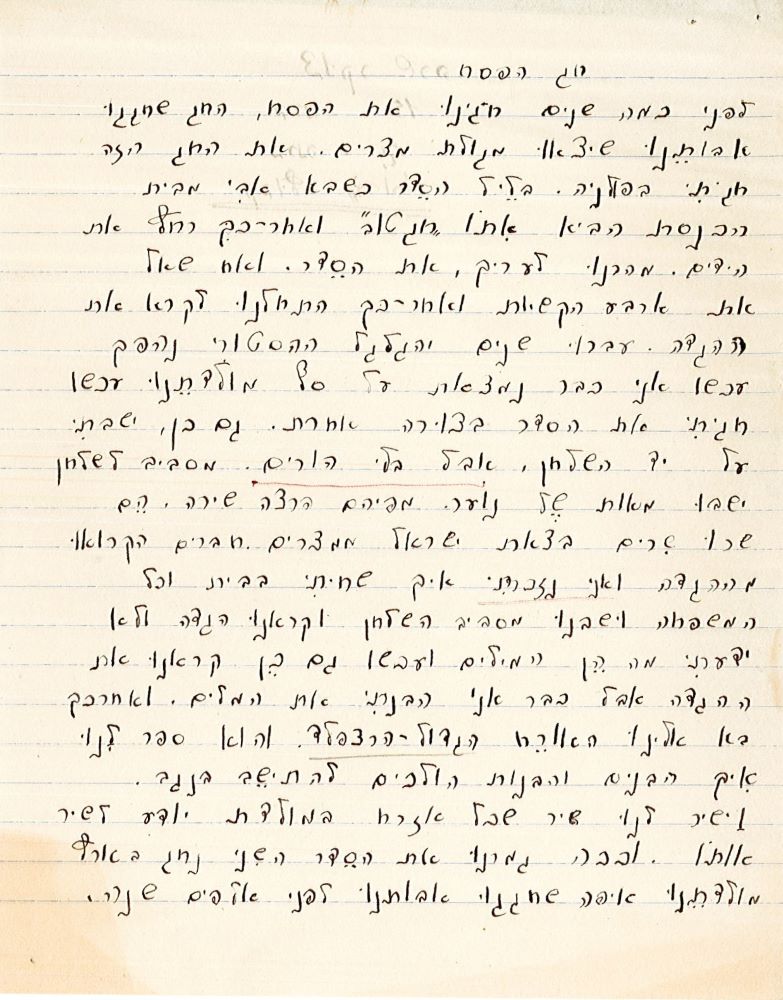 חג הפסח
לפני כמה שנים חגינו את הפסח, החג שחגגו
אבותינו שיצאו מגלות מצרים. את החג הזה
חגיתי בפולניה. בליל הסדר כשבא אבי מבית
הכנסת הביא אתו "חג טוב" ואחר-כך רחץ את
הידים. מהרנו לעריך, את הסדר. ואח שאל
את ארבע הקשיות ואחר-כך התחלנו לקרא את
ההגדה. עברו שנים והגלגל ההסטורי נהפך
עכשו אני כבר נמצאת על סף מולדתנו עכשו
חגיתי את הסדר בצוירה אחרת. גם כן, ישבתי
על יד השלחן, אבל בלי הורים. מסביב לשלחן
ישבו מאות של נוער. מפיהם הרצה שירה. הם
שרו שרים בצאת ישראל ממצרים. חברים הקרואו
מההגדה ואני נזכרתי איך שחיתי בבית וכל
המשפחה וישבנו מסביב השלחן וקראנו הגדה ולא
ידעתי מה הן המילים ועכשו גם כן קראנו את
ההגדה אבל כבר אני הבנתי את המלים. ואחרכך
בא אלינו האורח הגדול-הרצפלד. והוא ספר לנו
איך הבנים והבנות הולכים להתישב בנגב.
ושיר לנו שיר שכל אזרח במולדת יודע לשיר
אותו. וככה גמרנו את הסדר השני נחג בארץ
מולדתנו איפה שחגגו אבותנו לפני אלפים שנה.